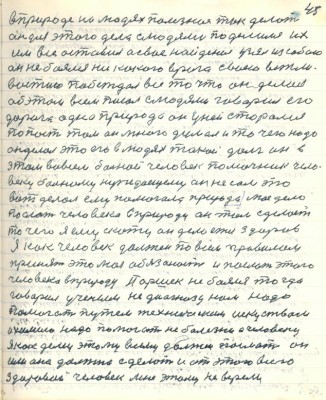 48
в природе на людях полезная так делот
он для этого дела с людями поднимем их
им все оставил а свое найденое учел из собою
он не боялся ни какого врага своею вежли-
востию побеждал все то что он делал
об этом всем писал с людями говорил его
дорога одна природа он у ней старался
попост том он много думал и то чего надо
он делал это его в людях такой долг он в
этом во всем больной человек помощник чело-
веку больному нуждающему он не сам это
вот делал ему помогала природа надело
послат человека в природу он там сделает
то чего я ему скажу он делается здоров
Я как человек должен по всем правилам
принят это моя обязаност и послат этого
человека в природу Паршек не боялся тогда
говорил ученым не диагнозу нам надо
помогать путем техническим искуством
а химию надо помогат не болезни а человеку
я как делу этому всему должен послат он
или она должна сделат и от этого всего
здоровый человек мне этому не верели